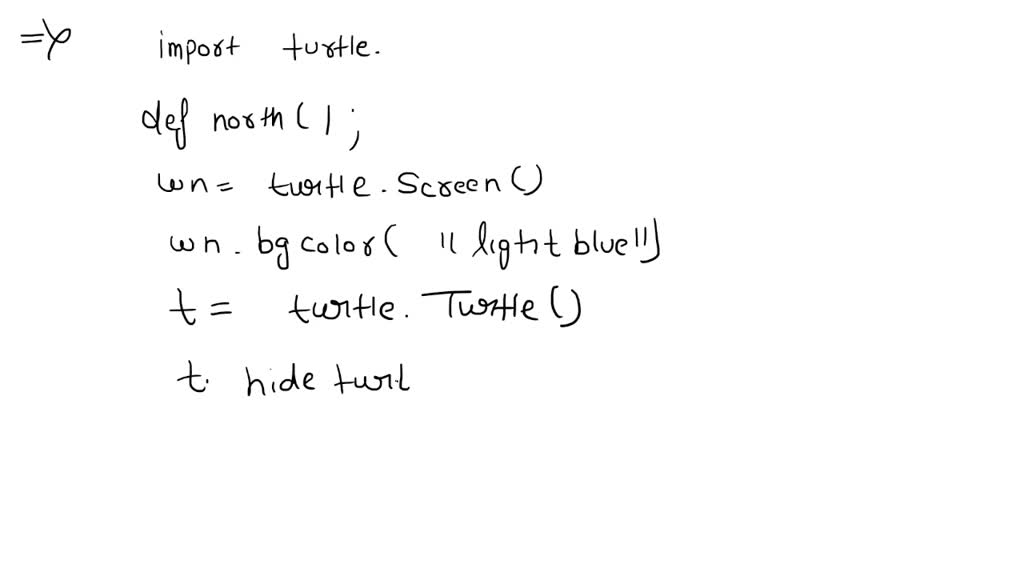 => import turtle.
def north( ) ;
wn = turtle. Screen()
wn. bgcolor( "light blue")
t = turtle. Turtle()
t. hide turt